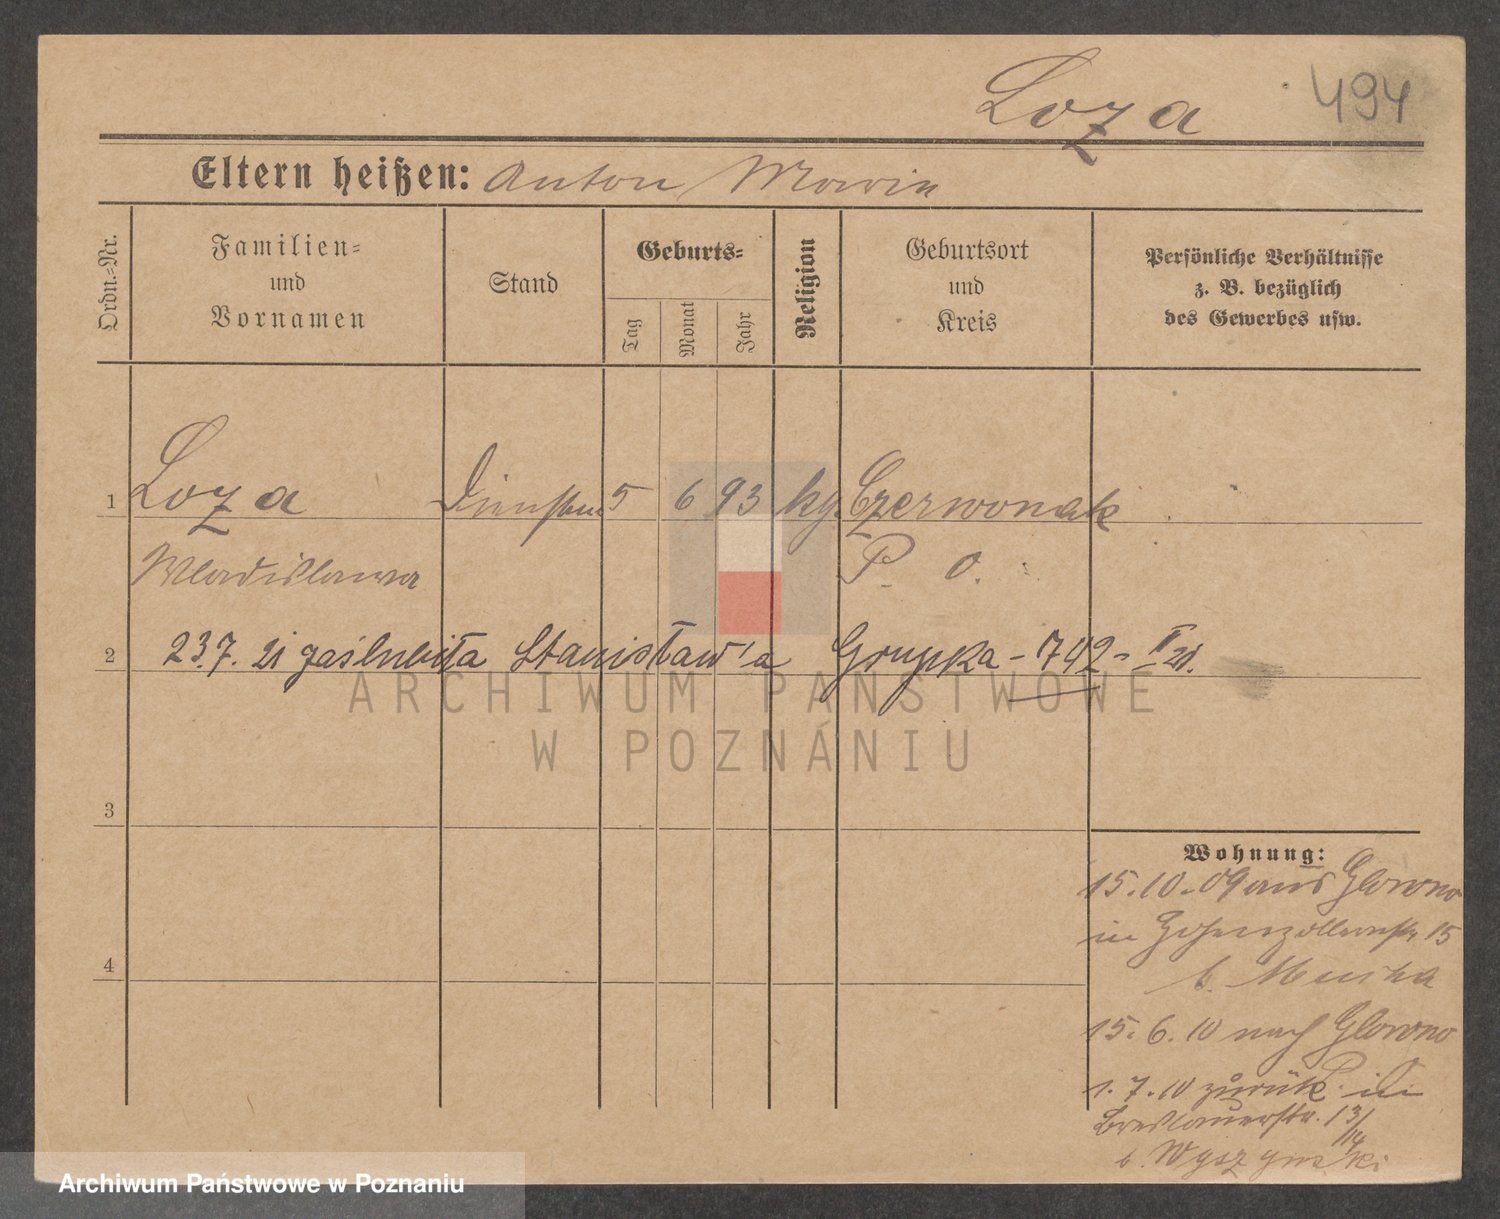 Loza 494
Eltern heißen: Anton Marie
Ordn.-Nr.
Familien-
und
Vornamen
Stand
Geburts-
Tag
Monat
Jahr
Religion
Geburtsort
und
Kreis
Persönliche Verhältnisse
z. B. bezüglich
des Gewerbes usw.
1 Loza 5 6 93 Czerwonak
Wladislawa P. O.
2 23.7. 21 zaślubiła Stanisław'a Grupka - 742 - II 21.
3
Wohnung:
15.10.09 aus Glowno
4
in Hohenzollernstr 15
b.
15.6.10 nach Glowno
1.7.10 zurück in
Breslauerstr. 13/14
b. Wyszynski
ARCHIWUM PAŃSTWOWE
W POZNANIU
Archiwum Państwowe w Poznaniu